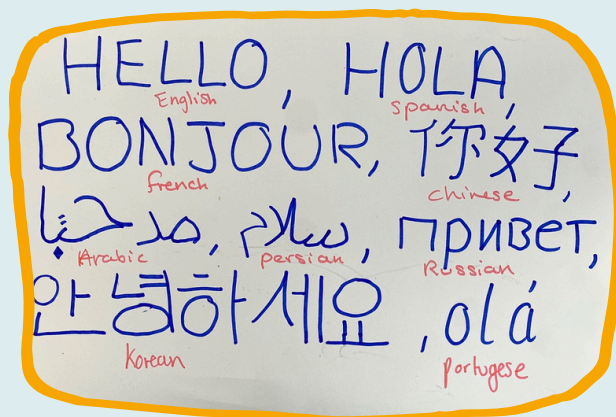 HELLO, HOLA,
English Spanish
BONJOUR, 你好,
french chinese
مرحبًا, سلام, привет,
Arabic persian Russian
안녕하세요, olá
Korean portugese